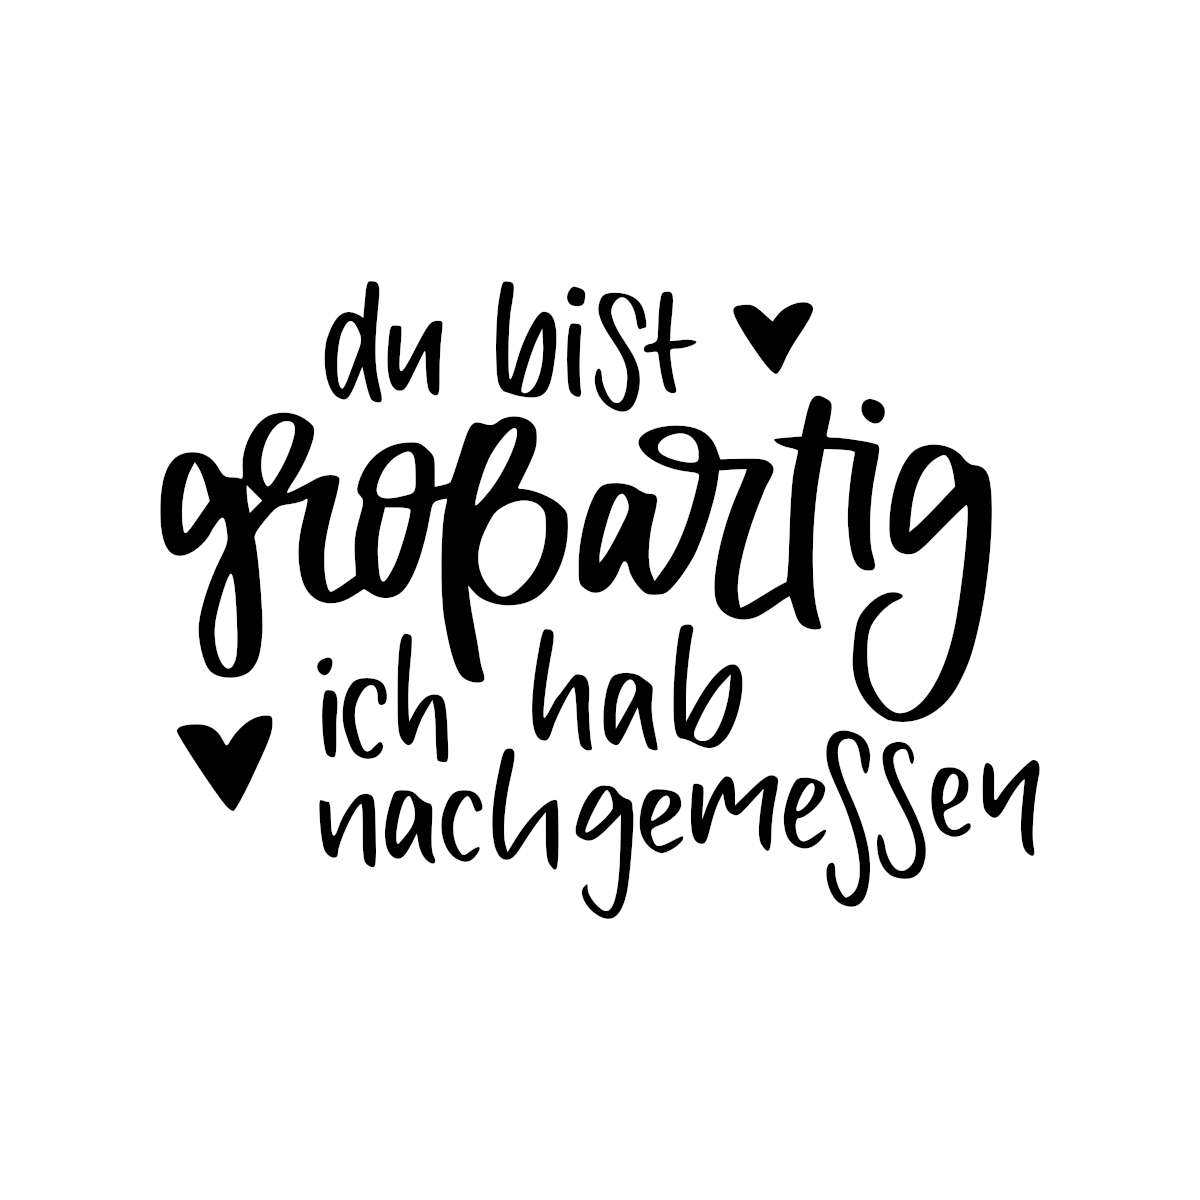 du bist
großartig
ich hab
nachgemessen